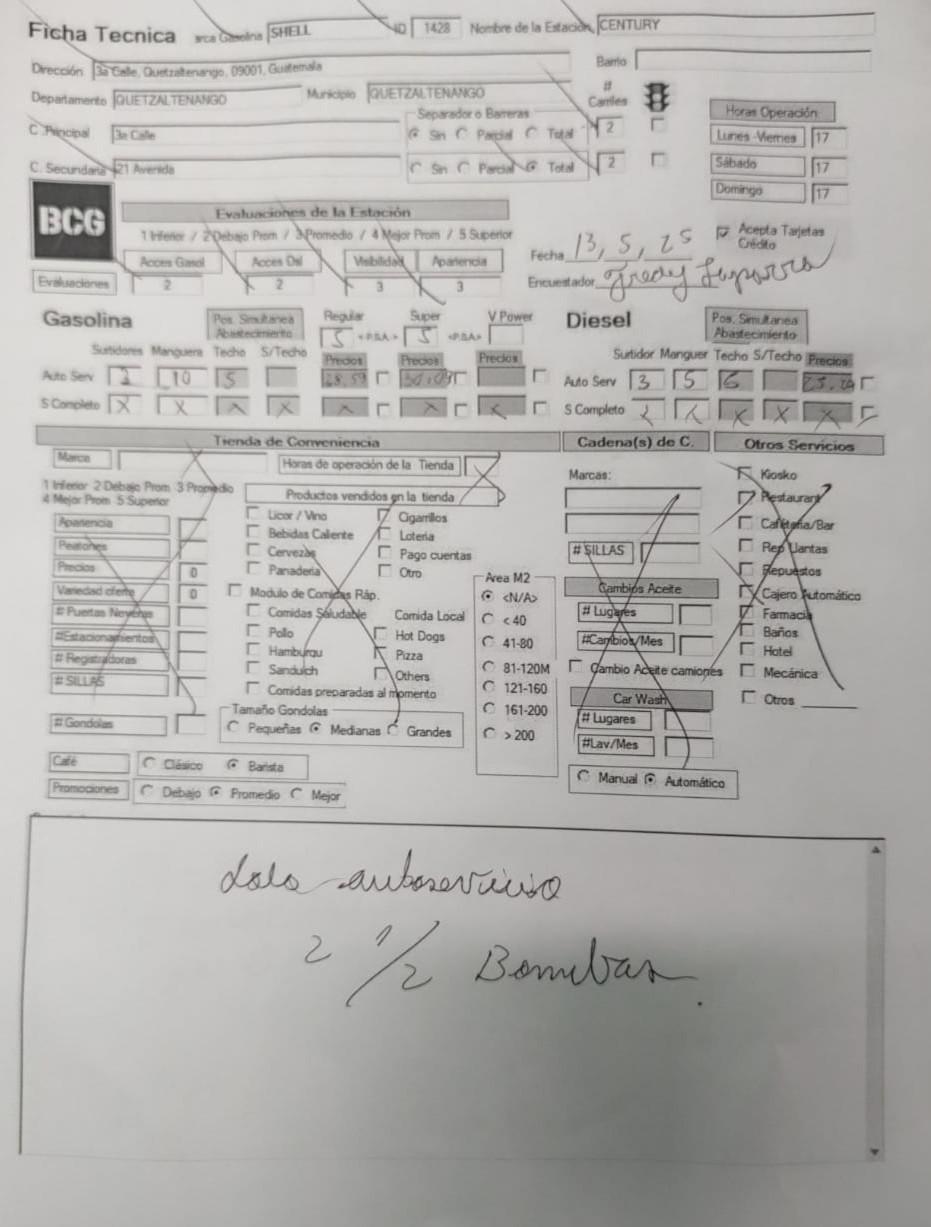 Ficha Tecnica arca Gasolina SHELL ID 1428 Nombre de la Estación CENTURY
Dirección 3a Calle, Quetzaltenango, 09001, Guatemala Barrio
Departamento QUETZALTENANGO Municipio QUETZALTENANGO # Carriles
Separador o Barreras Horas Operación
C. Principal 3a Calle Sin Parcial Total 2 Lunes -Viernes 17
C. Secundaria 21 Avenida Sin Parcial Total 2 Sábado 17
Domingo 17
BCG Evaluaciones de la Estación
1 Inferior / 2 Debajo Prom / 3 Promedio / 4 Mejor Prom / 5 Superior Fecha 13, 5, 25 Acepta Tarjetas Crédito
Acces Gasol Acces Dsl Visibilidad Apariencia
Evaluaciones 2 2 3 3 Encuestador Fredy
Gasolina Pos. Simultanea Abastecimiento Regular Super V Power Diesel Pos. Simultanea Abastecimiento
5 <P.S.A.> 5 <P.S.A.>
Surtidores Manguera Techo S/Techo Precios Precios Precios Surtidor Manguer Techo S/Techo Precios
Auto Serv 10 5 28.59 30.09 Auto Serv 3 5
S Completo X X X X X X X S Completo X X X X X
Tienda de Conveniencia Cadena(s) de C. Otros Servicios
Marca Horas de operación de la Tienda Marcas: Kiosko
1 Inferior 2 Debajo Prom 3 Promedio
4 Mejor Prom 5 Superior Productos vendidos en la tienda Restaurant
Apariencia Licor / Vino Cigarrillos Cafetería/Bar
Peatones Bebidas Caliente Loteria # SILLAS Rep Llantas
Precios 0 Cervezas Pago cuentas Area M2 Repuestos
Panaderia Otro
Variedad oferta 0 Modulo de Comidas Ráp. <N/A> Cambios Aceite Cajero Automático
# Puertas Neveras Comidas Saludable Comida Local < 40 # Lugares Farmacia
#Estacionamientos Pollo Hot Dogs 41-80 #Cambios/Mes Baños
# Registradoras Hamburgu Pizza Hotel
# SILLAS Sanduich Others 81-120M Cambio Aceite camiones Mecánica
Comidas preparadas al momento 121-160 Car Wash Otros
# Gondolas Tamaño Gondolas 161-200 # Lugares
Pequeñas Medianas Grandes > 200 #Lav/Mes
Café Clásico Barista Manual Automático
Promociones Debajo Promedio Mejor
solo autoservicio
2 1/2 Bombas.